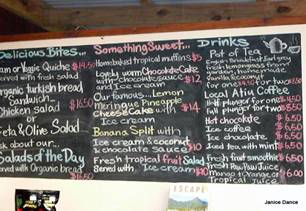 Delicious Bites...
am or Veggie Quiche $14.50
erved with fresh salad
organic turkish bread
Sandwich... $16.50
Chicken salad
or
Feta & Olive Salad $16.50
ask about our...
Salads of the Day
served with Organic bread $16.50
Something Sweet...
Home baked tropical muffins $5
Lovely warm Chocolate Cake
with chocolate sauce
and Ice cream $12
Our famous... Lemon
Meringue Pineapple
Cheese Cake with $14
Ice cream
Banana Split with
Ice cream & coconut
& chocolate Sauce $10
Fresh tropical fruit Salad
Served with Ice cream $10
Drinks
Pot of Tea
English Breakfast, Earl grey
fresh lemongrass from
garden, homemade
vanilla, coconut
Local Atiu Coffee
Hot chocolate
Iced coffee
Ice chocolate
Iced tea with mint
Fresh fruit smoothie
Fresh Juice
Mango or Orange &
Tropical Juice
ESCAPE
Janice Dance